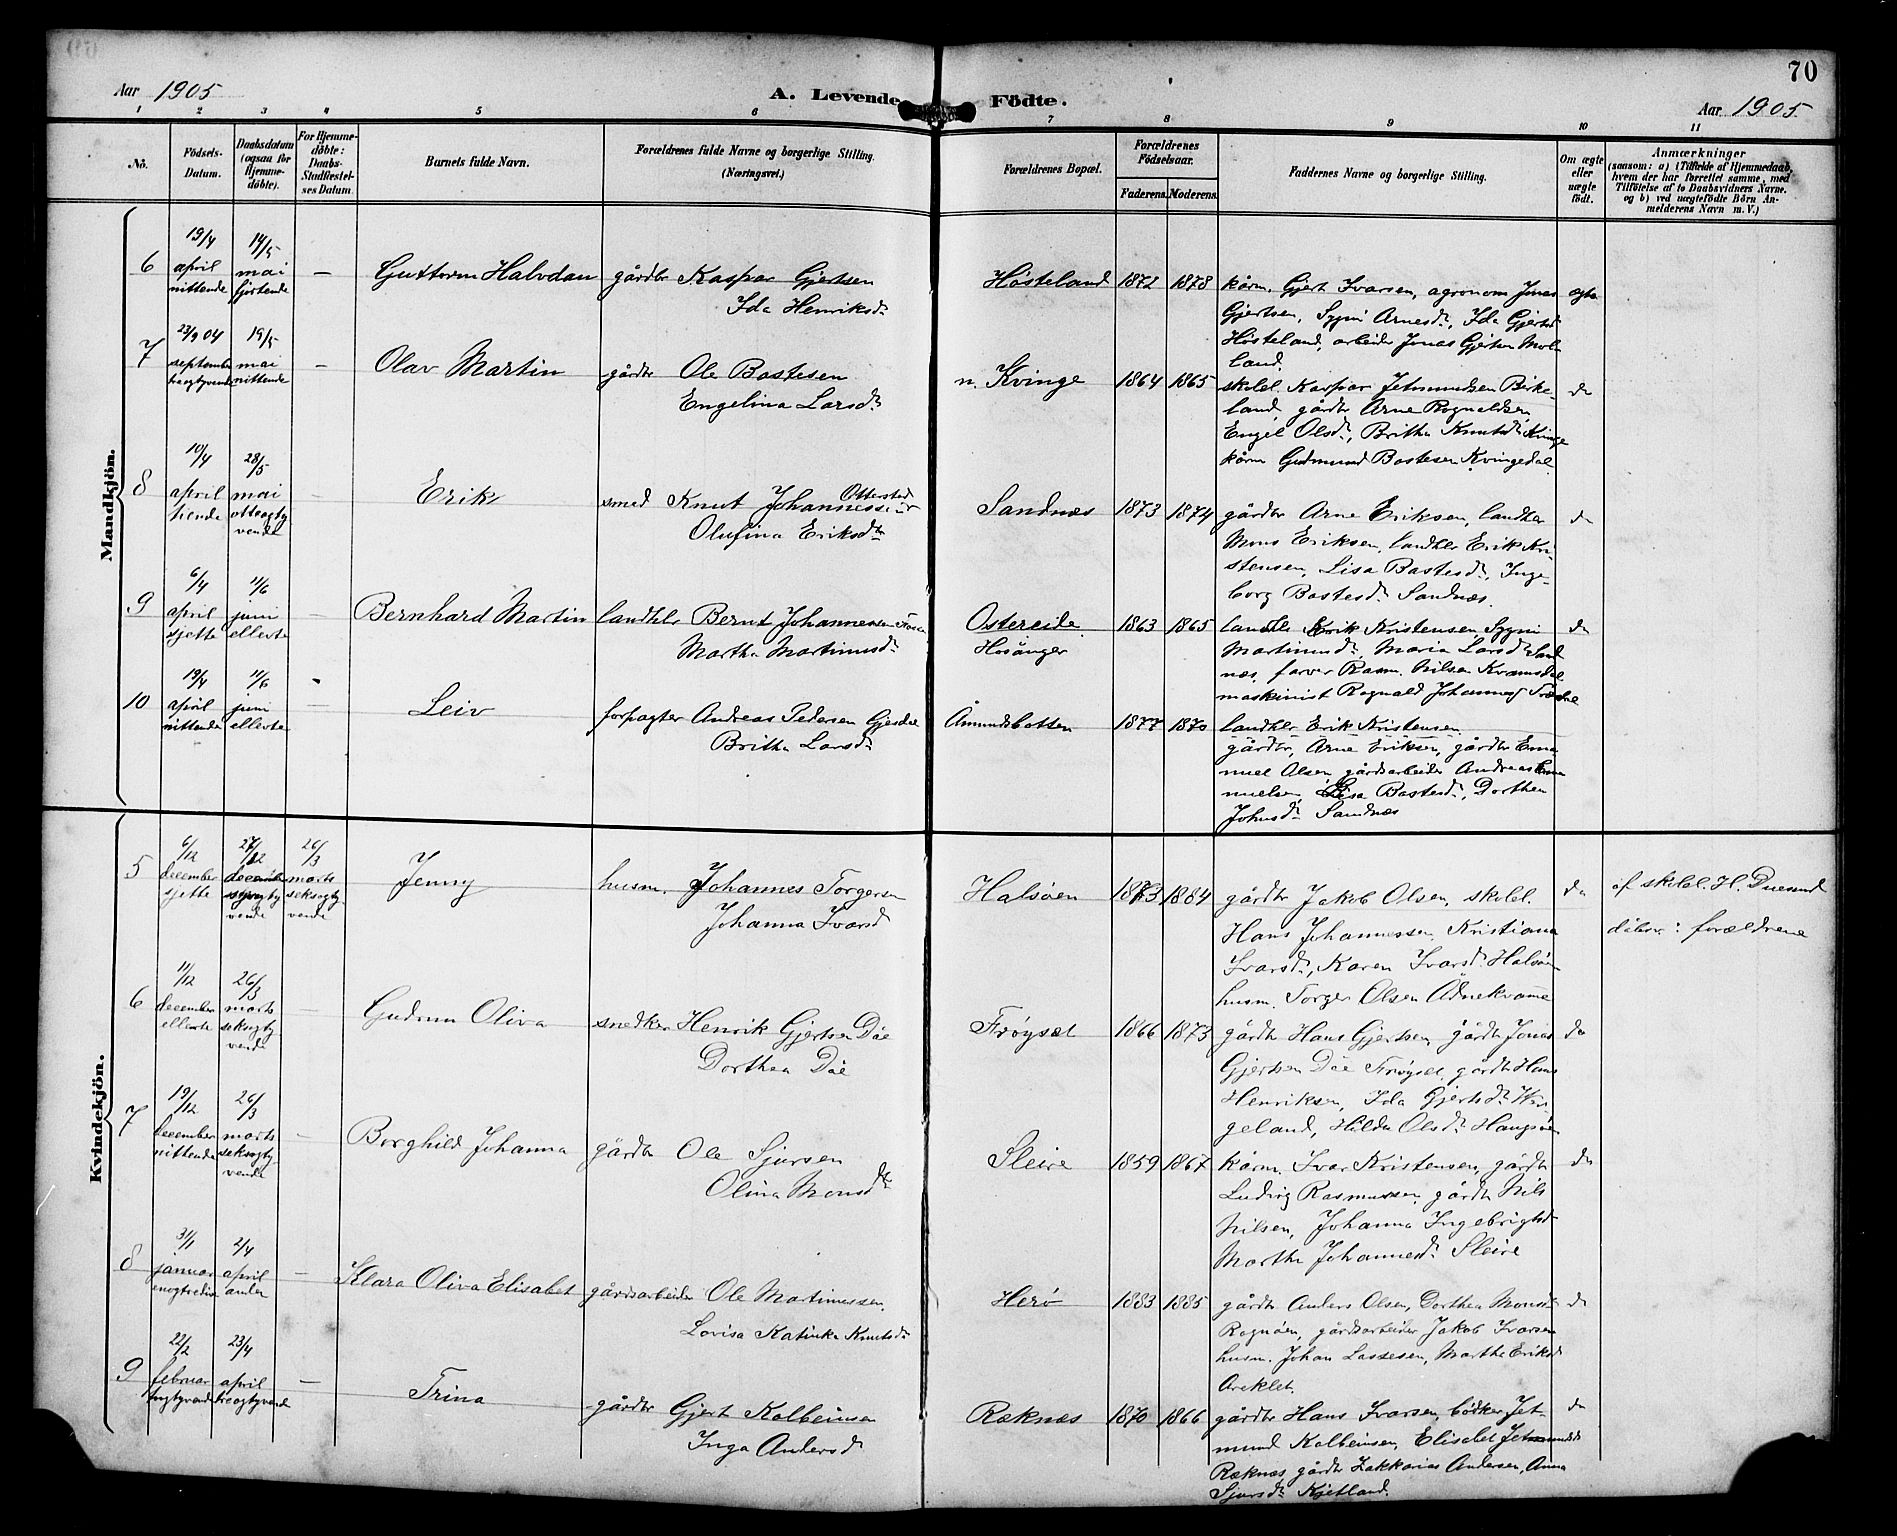 70
Aar 1905
A. Levende Födte.
Aar 1905.
1 2 3 4 5 6 7 8 9 10 11
No.
Födsels-Datum.
Daabsdatum (ogsaa for Hjemmedöbte).
For Hjemmedöbte: Daabs-Stadfæstelses Datum.
Barnets fulde Navn.
Forældrenes fulde Navne og borgerlige Stilling.
(Næringsvei.)
Forældrenes Bopæl.
Forældrenes Födselsaar.
Faderens.
Moderens.
Faddernes Navne og borgerlige Stilling.
Om ægte eller uægte födt.
Anmærkninger
(saasom: a) i Tilfælde af Hjemmedaab, hvem der har forrettet samme, med Tilföielse af to Daabsvidners Navne. og b) ved uægtefödte Börn Anmelderens Navn m. V.)
Mandkjön.
6
19/4 april nittende
14/5 mai fjortende
—
Guttorm Halvdan
gårdbr Kaspar Gjertsen
Ida Henriksdr
Hösteland
1872 1878
kårm. Gjert Ivarsen, agronom Jonas
Gjertsen, Sygni Arnesdr, Ida Gjertsdr
Hösteland, arbeider Jonas Gjertsen Mol-
land.
ægte
7
23/9 04 september treogtyvende
19/5 mai nittende
—
Olav Martin
gårdbr Ole Bastesen
Engelina Larsdr
n. Kvinge
1864 1865
skolel. Kaspar Jetmundsen Birke-
land, gårdbr Arne Rognaldsen,
Engel Olsdr, Britha Knutsdr Kvinge
kårm Gudmund Bastesen Kvingedal
do
8
10/4 april tiende
28/5 mai otteogtyvende
—
Erik
smed Knut Johannessen Otterstad
Olufina Eriksdtr
Sandnæs
1873 1874
gårdbr Arne Eriksen, landhlr
Mons Eriksen, landhlr Erik Kri-
stensen, Lisa Bastesdr, Inge-
borg Bastesdr Sandnæs.
do
9
6/4 april sjette
11/6 juni ellevte
—
Bernhard Martin
landhlr Bernt Johannessen
Martha Martinusdr
Ostereide
Hosanger
1863 1865
landhlr Erik Kristensen, Sygni
Martinusdr, Maria Larsdr Sand-
næs, farver Rasm. Nilsen Kvamsdal
maskinist Rognald Johannes
do
10
19/4 april nittende
11/6 juni ellevte
—
Leiv
forpagter Andreas Pedersen Gjesdal
Britha Larsdr
Åmundsbotten
1877 1870
landhlr Erik Kristensen
gårdbr, Arne Eriksen, gårdbr Ema-
nuel Olsen, gårdsarbeider Andreas Ema-
nuelsen, Lisa Bastesdr, Dorthea
Johnsdr Sandnæs
Kvindekjön.
5
6/12 december sjette
27/12 december syvogtyvende
26/3 marts seksogtyvende
Jenny
husm. Johannes Torgersen
Johanna Ivarsdr
Halsöen
1873 1884
gårdbr Jakob Olsen, skolel.
Hans Johannessen, Kristiana
Ivarsdr, Karen Ivarsdr Halsöen
husm. Torger Olsen Ådnekvamme
do
af skolel. H. Duesund
dåbsv: forældrene
6
11/12 december ellevte
26/3 marts seksogtyvende
—
Gudrun Oliva
snedker Henrik Gjertsen Däe
Dorthea Däe
Fröyset
1866 1873
gårdbr Hans Gjertsen, gårdbr Jonas
Gjertsen Däe Fröyset, gårdbr Hans
Henriksen, Ida Gjertsdr
geland, Hilda Olsdr Haugsöen
do
7
19/12 december nittende
26/3 marts seksogtyvende
—
Borghild Johanna
gårdbr Ole Sjursen
Olina Monsdtr
Sleire
1859 1867
kårm. Ivar Kristensen, gårdbr
Ludvig Rasmussen, gårdbr Nils
Nilsen, Johanna Ingebrigtsdr
Martha Johannesdr Sleire
do
8
31/1 januar enogtredivte
2/4 april anden
—
Klara Oliva Elisabet
gårdsarbeider Ole Martinussen,
Lovisa Katinka Knutsdr
Herö
1883 1885
gårdbr Anders Olsen, Dorthea Monsdr
Rognöen, gårdsarbeider Jakob Ivarsen
husm. Johan Lassesen, Marthe Eriksdr
Areklet.
do
9
22/2 februar toogtyvende
23/4 april treogtyvende
—
Trina
gårdbr Gjert Kolbeinsen
Inga Andersdr
Ræknæs
1870 1866
gårdbr Hans Ivarsen, bödker Jet-
mund Kolbeinsen, Elisabet Jetmundsdr
Ræknæs, gårdbr Zakkarias Andersen, Anna
Sjursdr Kjetland.
do